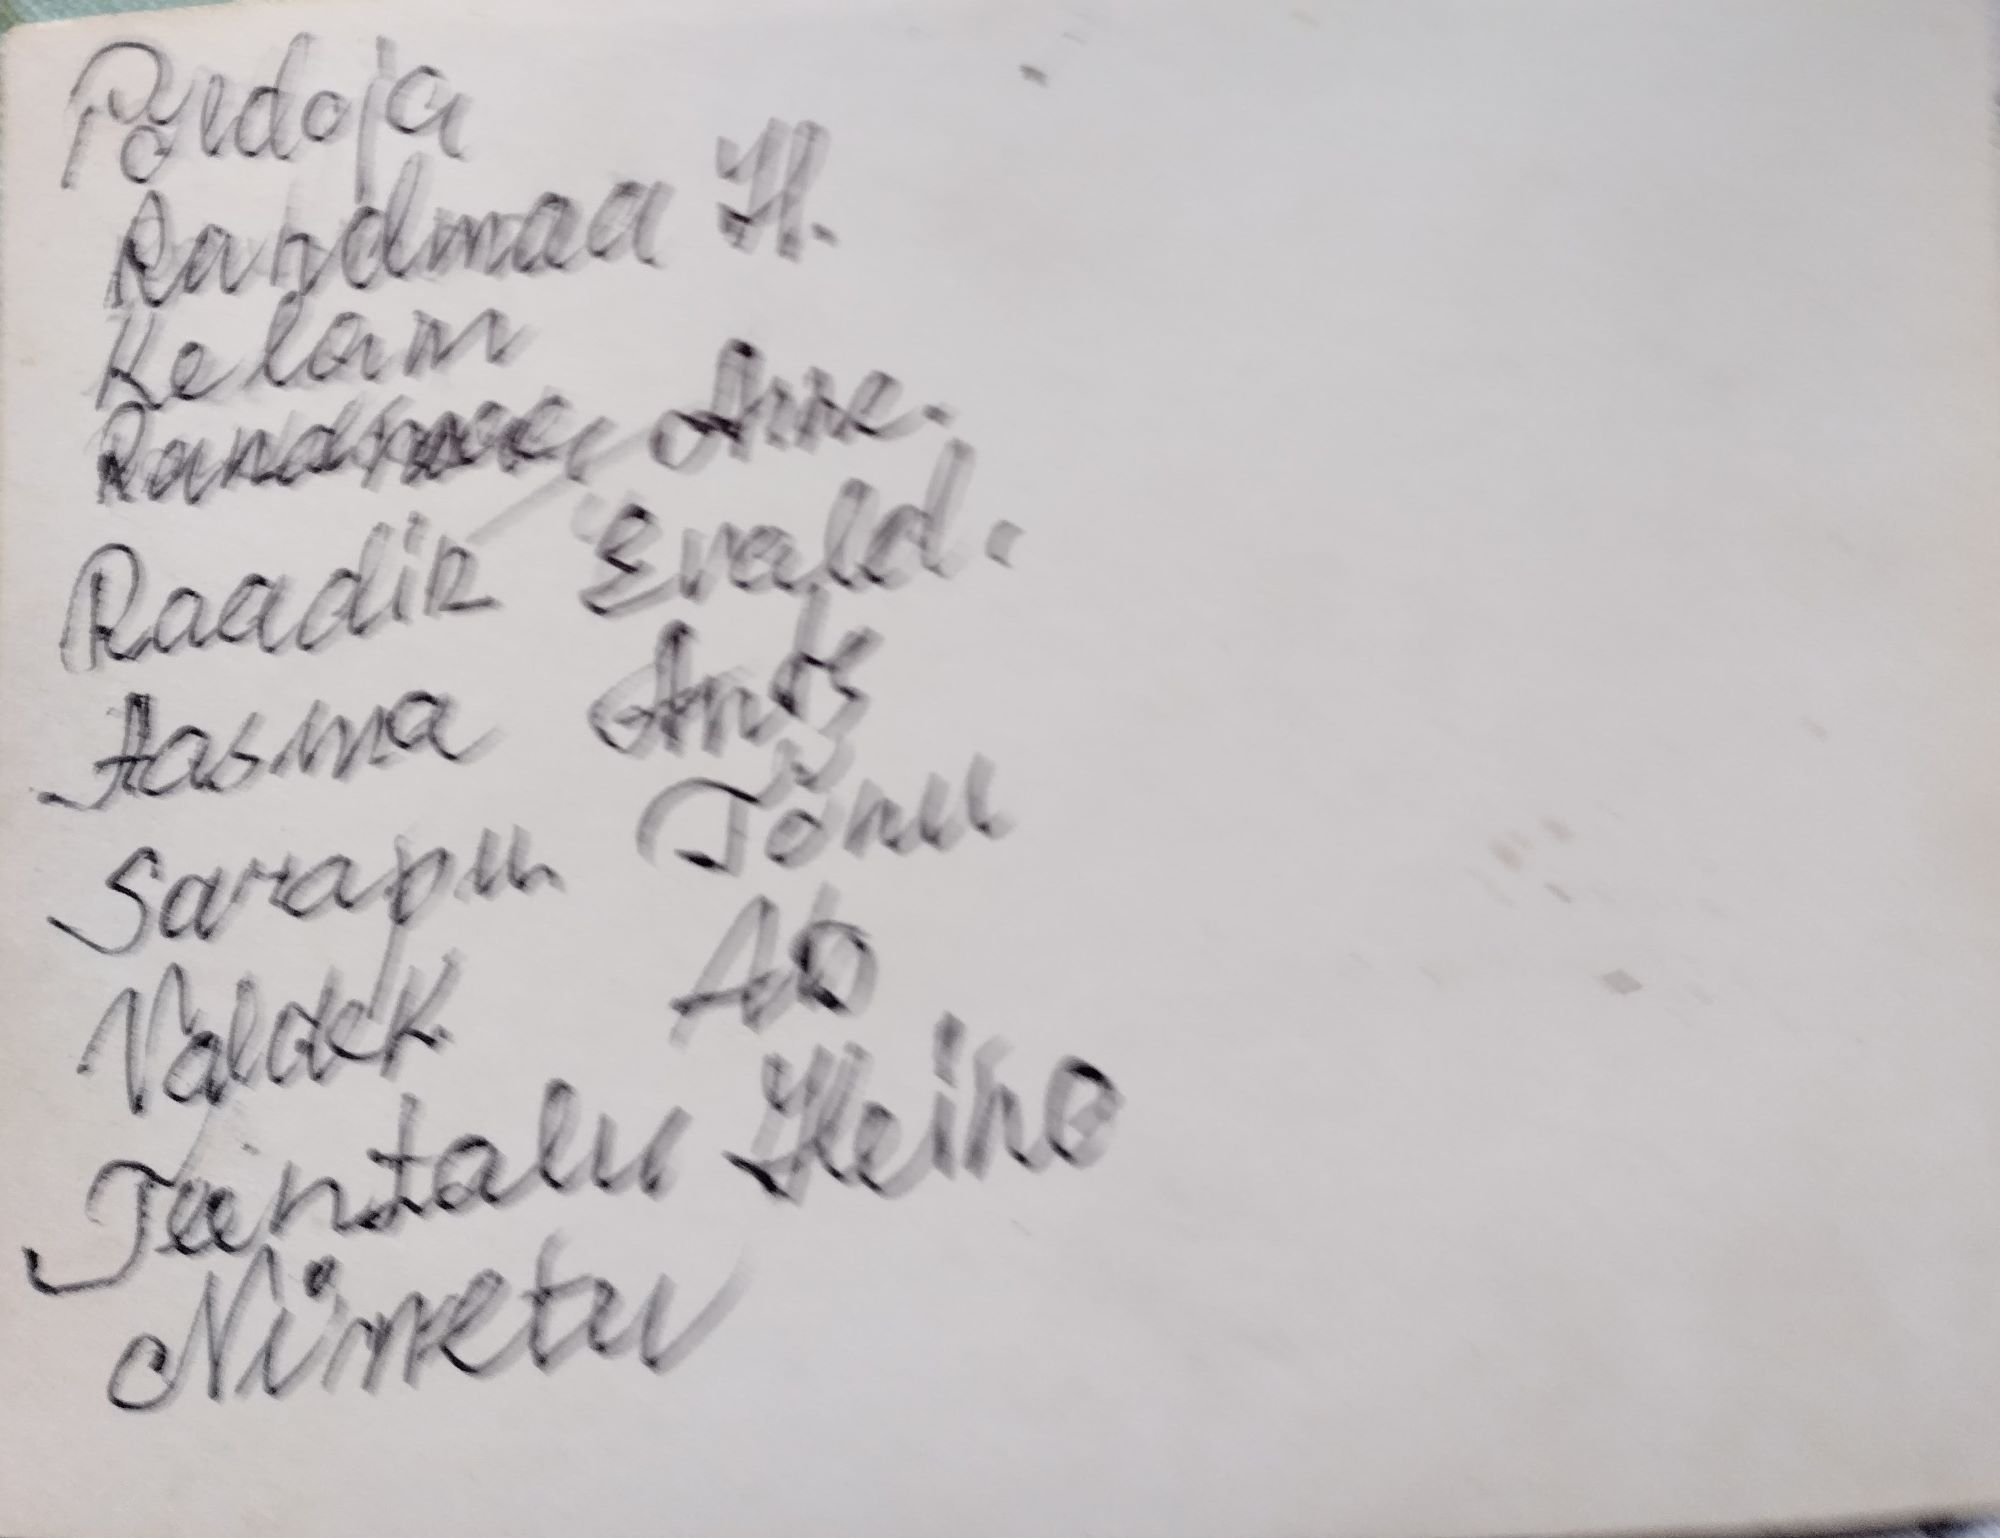 Põldoja
Randmaa H.
Kelam
Randmaa Arne.
Raadik Evald.
Aasma Ants
Sarapuu Tõnu
Valdek
Teintalu Heino
Nimetu